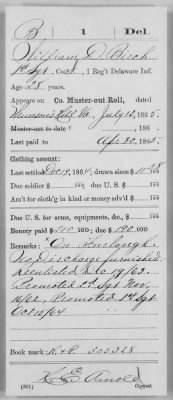 B 1 Del.
William D. Birch
1st Sgt, Co. , 1 Reg't Delaware Inf.
Age 28 years.
Appears on Co. Muster-out Roll, dated
Munson's Hill Va. July 12, 1865.
Muster-out to date , 186 .
Last paid to Apr 30, 1865.
Clothing account:
Last settled Dec 19, 1864; drawn since $
Due soldier $ 100; due U.S. $ 100
Am't for cloth'g in kind or money adv'd $ 100
Due U.S. for arms, equipments, &c., $ 100
Bounty paid $210 100; due $190 100
Remarks: On Furlough.
No Discharge furnished
Reenlisted Dec 19/63.
Promoted 2d Sgt Nov.
16/62, Promoted 1st Sgt
Oct 13/64
Book mark: R. & P. 203328
K. E. Arnold
(861) Copyist.